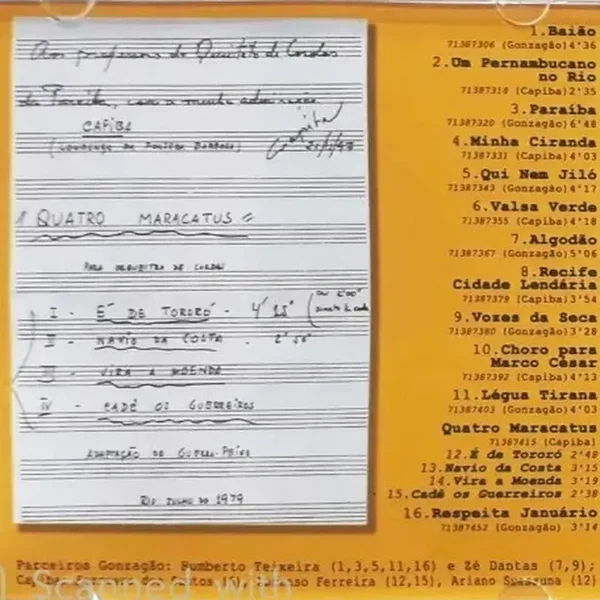 Aos professores do Quinteto de Cordas
da Paraíba, com a minha admiração
CAPIBA
(LOURENÇO DA FONSECA BARBOSA)
Capiba
QUATRO MARACATUS =
PARA ORQUESTRA DE CORDAS
I - É DE TORORÓ - 4' 15"
II - NAVIO DA COSTA - 2' 50"
III - VIRA A MOENDA
IV - CADÊ OS GUERREIROS
ADAPTAÇÃO DE GUERRA-PEIXE
RIO JULHO DE 1979
1.Baião
71387306 (Gonzagão)4'36
2.Um Pernambucano
no Rio
71387318 (Capiba)2'35
3.Paraíba
71387320 (Gonzagão)6'48
4.Minha Ciranda
71387331 (Capiba)4'03
5.Qui Nem Jiló
71387343 (Gonzagão)4'17
6.Valsa Verde
71387355 (Capiba)4'18
7.Algodão
71387367 (Gonzagão)5'06
8.Recife
Cidade Lendária
71387379 (Capiba)3'54
9.Vozes da Seca
71387380 (Gonzagão)3'28
10.Choro para
Marco César
71387392 (Capiba)4'13
11.Légua Tirana
71387403 (Gonzagão)4'03
Quatro Maracatus
71387415 (Capiba)
12.É de Tororó 2'48
13.Navio da Costa 3'15
14.Vira a Moenda 3'19
15.Cadê os Guerreiros 2'38
16.Respeita Januário
71387452 (Gonzagão) 3'14
Parceiros Gonzagão: Humberto Teixeira (1,3,5,11,16) e Zé Dantas (7,9);
Ferreira (12,15), Ariano Suassuna (12)
Scanned with